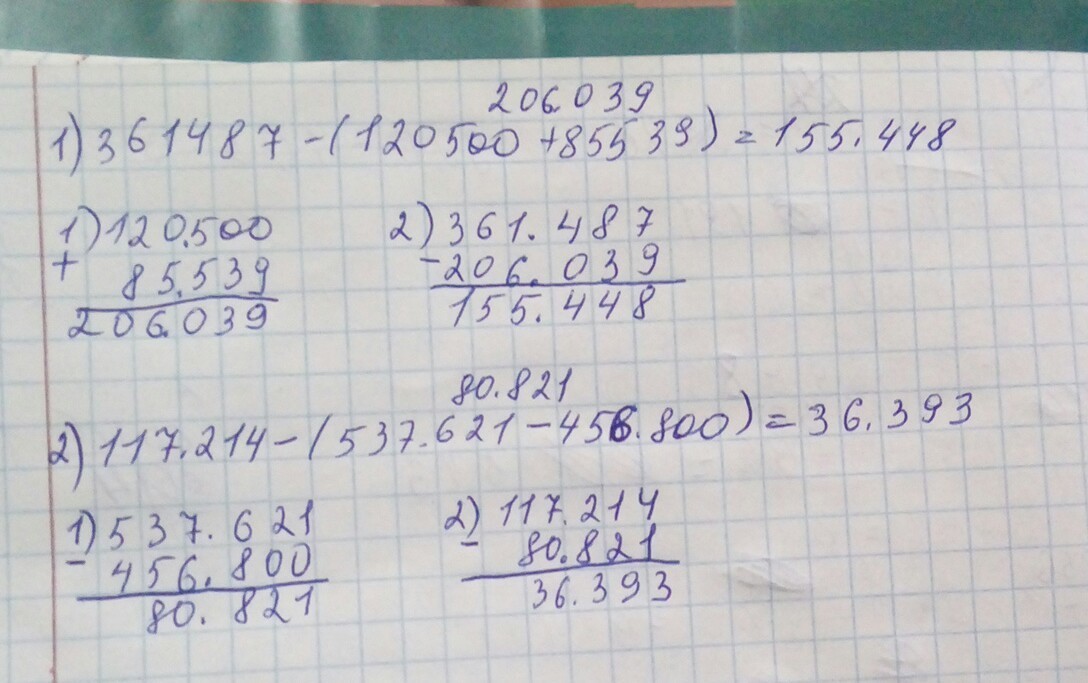 206.039
1) 361487 - (120500 + 85539) = 155.448
1) 120.500
+ 85.539
206.039
2) 361.487
- 206.039
155.448
80.821
2) 117.214 - (537.621 - 456.800) = 36.393
1) 537.621
- 456.800
80.821
2) 117.214
- 80.821
36.393